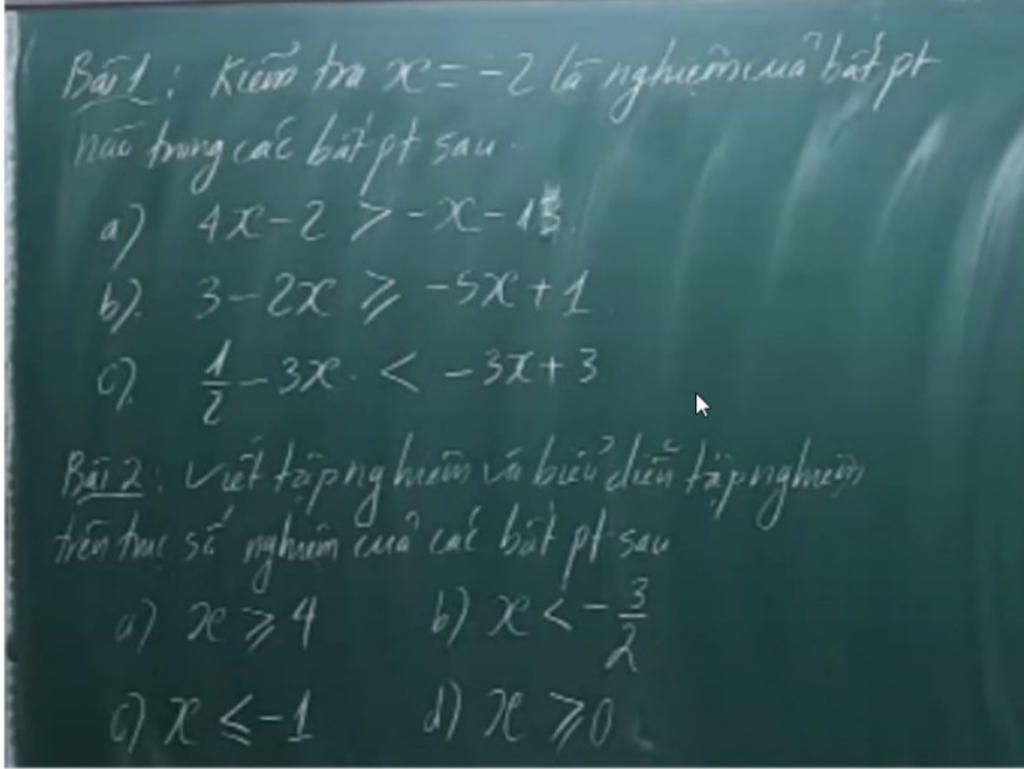 Bài 1: Kiểm tra x = -2 là nghiệm của bất pt
nào trong các bất pt sau.
a) 4x - 2 > -x - 13.
b). 3 - 2x ≥ -5x + 1
c). 1/2 - 3x < -3x + 3
Bài 2: Viết tập nghiệm và biểu diễn tập nghiệm
trên trục số nghiệm của các bất pt sau
a) x ≥ 4 b) x < -3/2
c) x ≤ -1 d) x ≥ 0